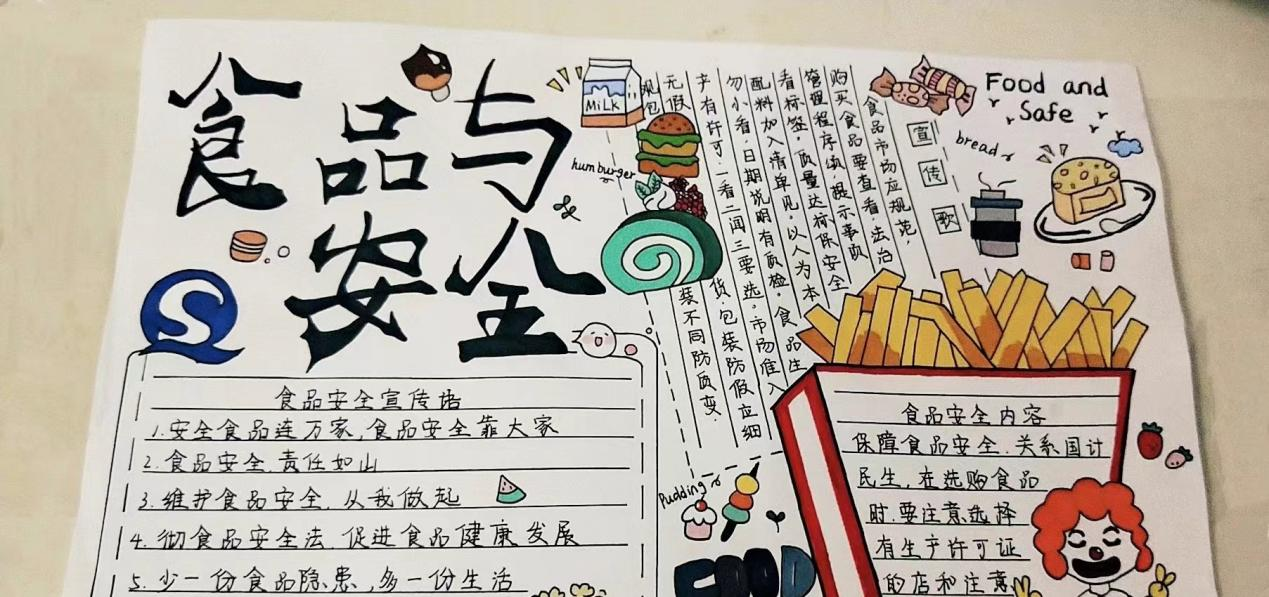 食品与
安全
S
MiLK
humburger
Food and
Safe
bread
宣传歌
食品市场应规范，
购买食品要查看，法治
管理程序填，提示事项
看标签，质量达标保安全
配料加入清单见，以人为本
勿小看，日期说明有质检，食品生
产有许可，一看二闻三要选，市场准入
无假货，包装防假应细
观，包装不同防质变.
食品安全宣传语
1.安全食品连万家,食品安全靠大家
2.食品安全,责任如山
3.维护食品安全,从我做起
4.彻食品安全法,促进食品健康发展
5.少一份食品隐患,多一份生活
Pudding
FOOD
食品安全内容
保障食品安全,关系国计
民生,在选购食品
时,要注意选择
有生产许可证
的店和注意